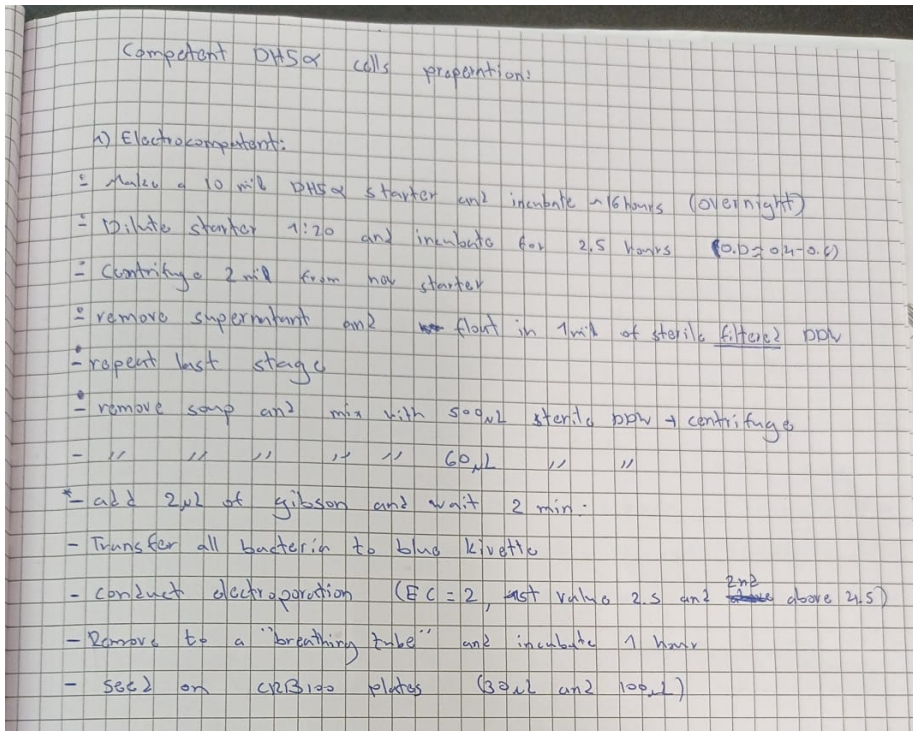 Competent DH5α cells preperation:
1) Electrocompetent:
- Make a 10 mil DH5α starter and incubate ~16 hours (overnight)
- Dilute starter 1:20 and incubate for 2.5 hours (O.D≈0.4-0.6)
- Centrifuge 2 mil from new starter
- remove supernatant and flout in 1 mil of sterile filtered DDW
- repeat last stage
- remove soup and mix with 500µL sterile DDW → centrifuge
- " " " " " 60µL " "
*- add 2µL of gibson and wait 2 min.
- Transfer all bacteria to blue kivette
- conduct electroporation (EC=2, 1st value 2.5 and 2nd above 4.5)
- Remove to a "breathing tube" and incubate 1 hour
- seed on plates (30µL and 100µL)